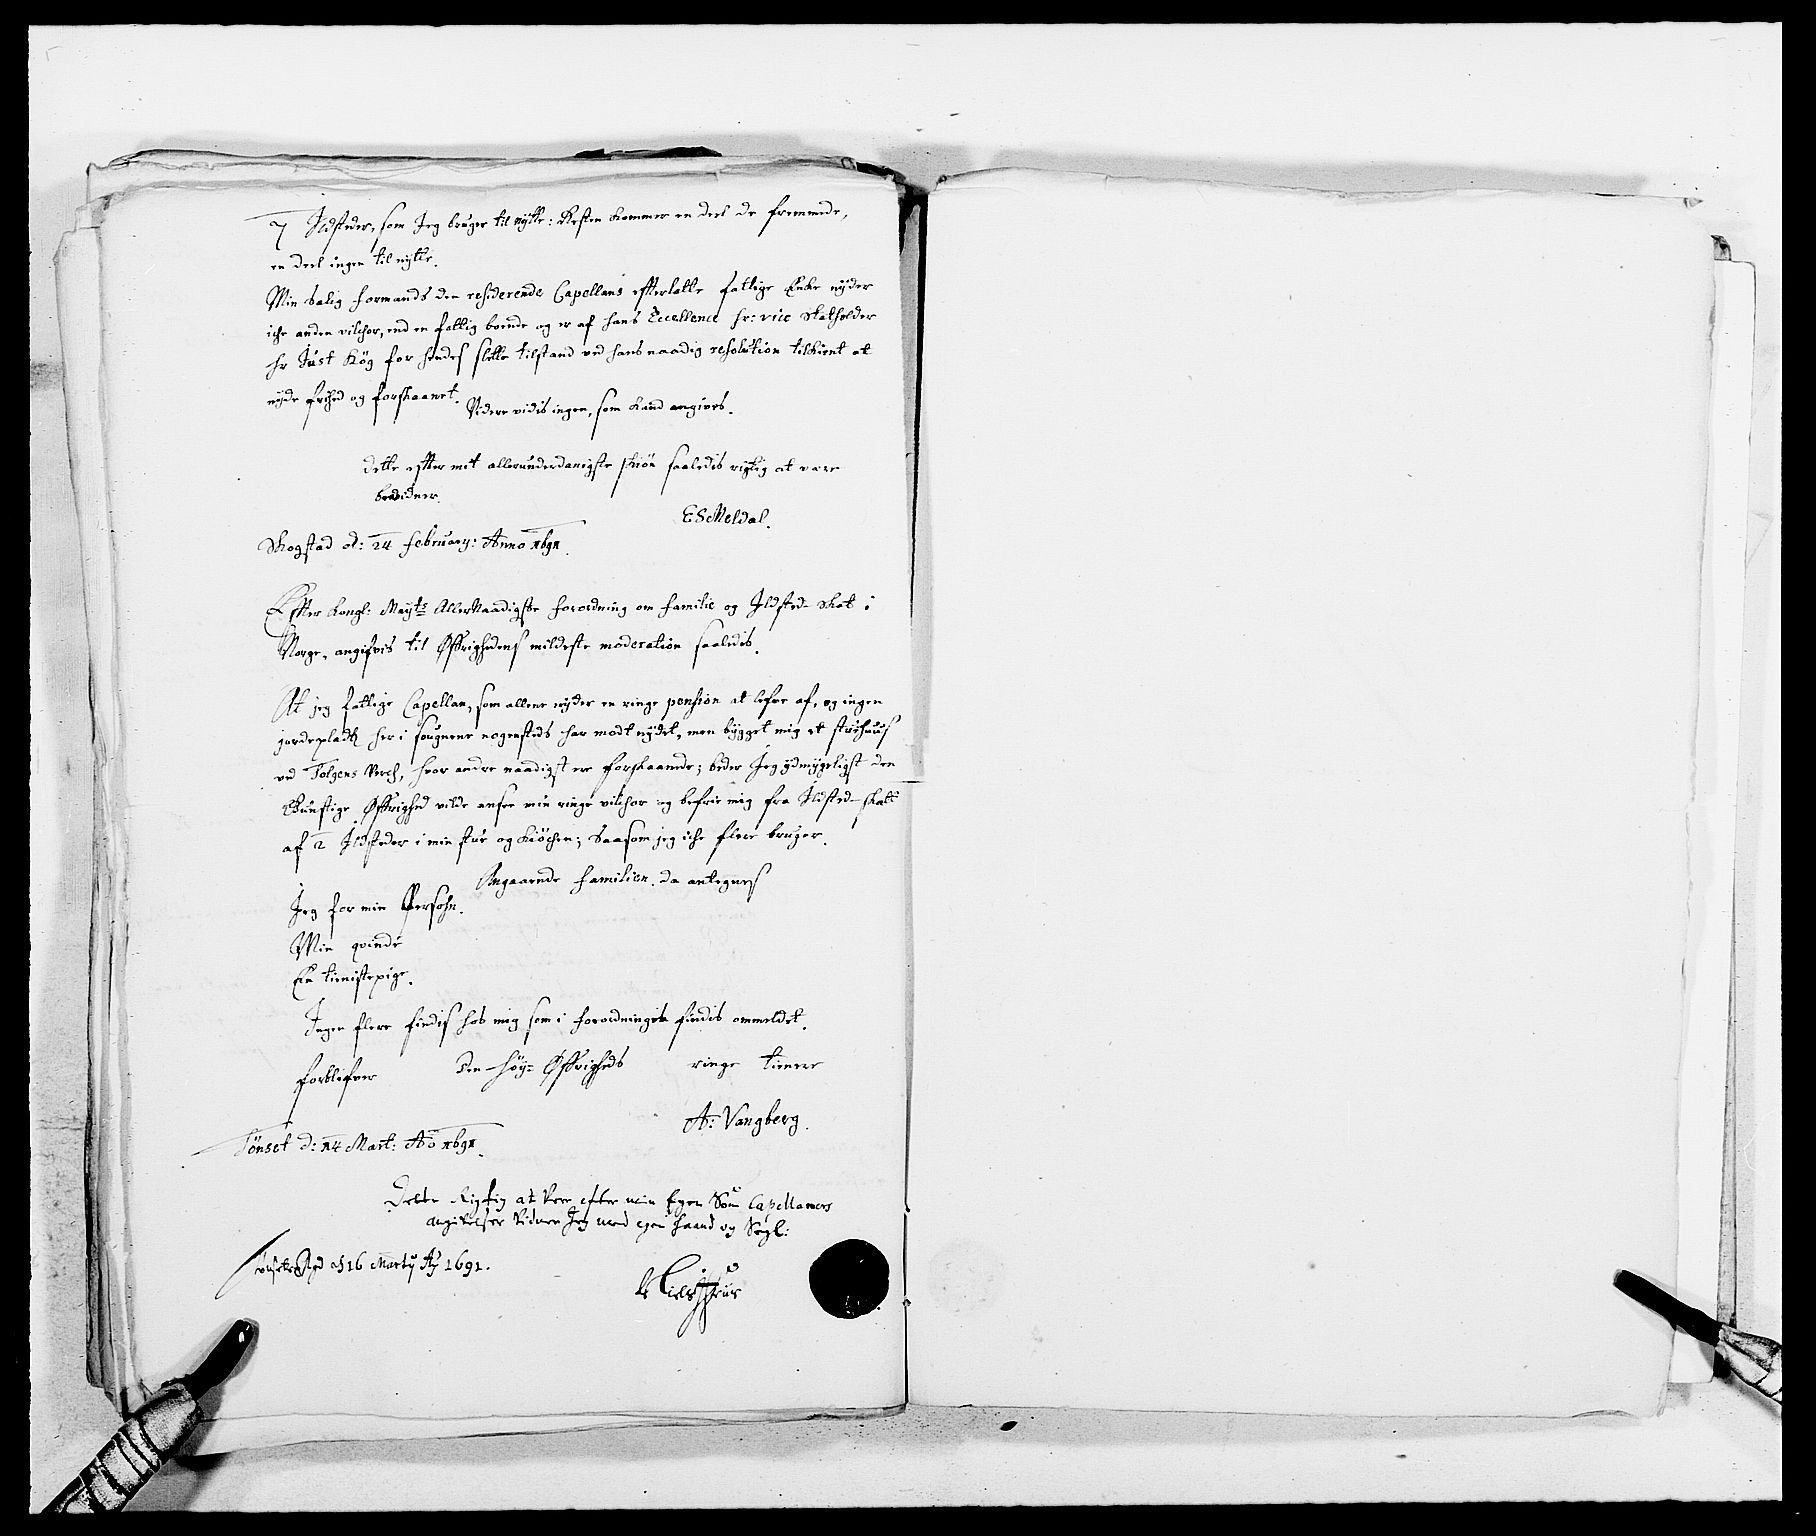 7 Ildsteder, som Jeg bruger til nytte: Resten kommer en deel de fremmede,
en deel ingen til nytte.
Min Salig Formands den residerende Capellans efterlatte fattige Enke nyder
iche anden vilchor, end en fattig bonde og er af hans Excellence hr: vice Statholder
hr Just Hög for hendes slette tilstand ved hans naadig resolution tilkient at
nyde frihed og forskaanet. Videre vidis ingen, som kand angives.
Dette efter mit allerunderdanigste skiön saaledis rigtig at vare
bevidner.
ESMeldal.
Skogstad d: 24 February: Anno 1691.
Effter Kongl: Mayts AllerNaadigste Forordning om Familie og Ildsted-Skat i
Norge, angifves til Øffrighedens mildeste moderation saaledis.
At jeg fattige Capellan, som allene nyder en ringe pension at lefve af, og ingen
jordepladtz her i sougnene nogensteds har modt nydet, men bygget mig et
ved Tolgens Verch, hvor andre naadigst ere forskaanede; beder Jeg ydmygeligst den
Gunstige Øffrighed vilde ansee min ringe vilchor og befrie mig fra Ildsted-skatt
af 2 Ildsteder i min stue og Kiöchen; Saasom jeg iche flere bruger.
Angaaende Familien, da antegnes
Jeg for min Persohn.
Min qvinde
En tienistepige.
Ingen flere findis hos mig som i forordningen findis ommeldet.
Forblifver den høy= Øffrigheds ringe tienere
A: Vangberg.
Tönset d: 14 Mart: Ao 1691.
Dette Rigtig at Vere efter min Egen Capellaners
angivelse Vidner Jeg med egen haand og Segl:
d 16 Marty Ao 1691.